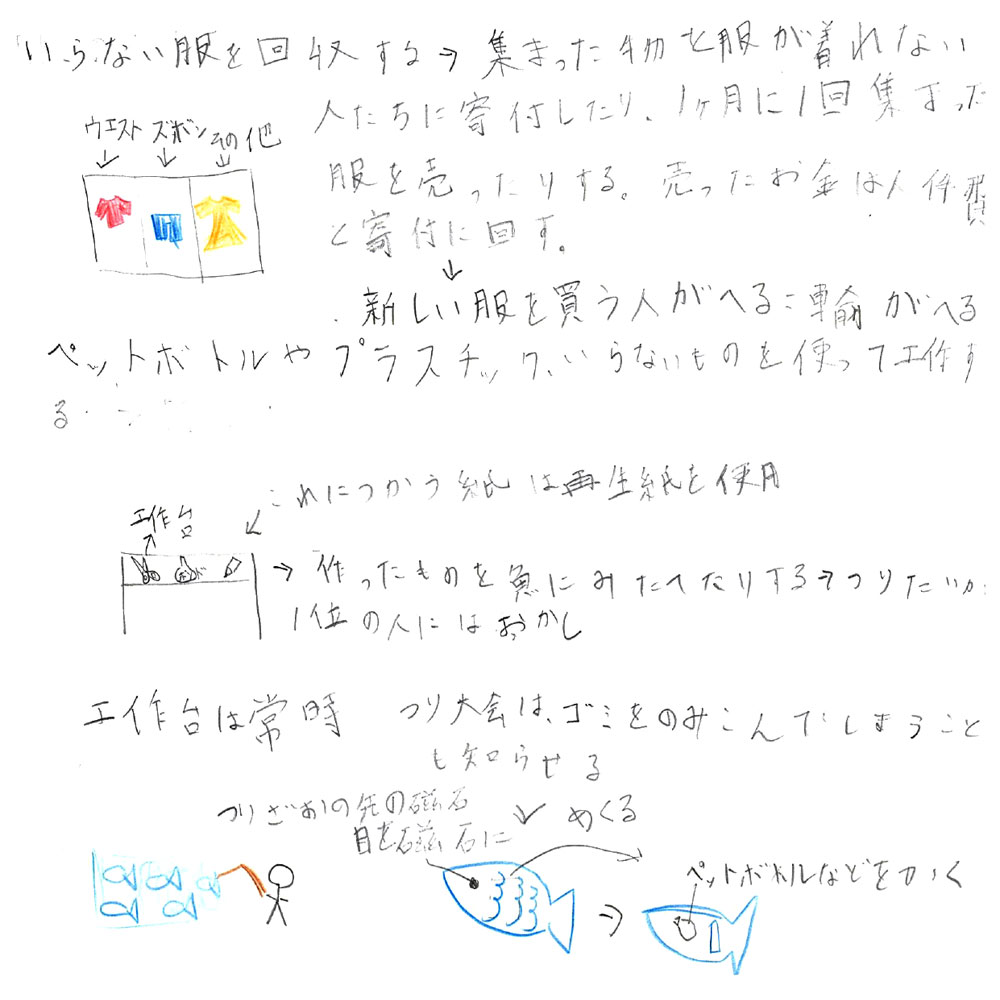 いらない服を回収する→集まった物を服が着れない
人たちに寄付したり、1ヶ月に1回集まった
ウエスト ズボン その他
服を売ったりする。売ったお金は人件費
と寄付に回す。
↓
・新しい服を買う人がへる=輸がへる
ペットボトルやプラスチック、いらないものを使って工作す
る・
これにつかう紙は再生紙を使用
工作台
→作ったものを魚にみたてたりする→つりたいか
1位の人にはおかし
工作台は常時
つり大会は、ゴミをのみこんでしまうこと
も知らせる
つりざおの先の磁石
目を磁石に
めくる
ペットボトルなどをかく